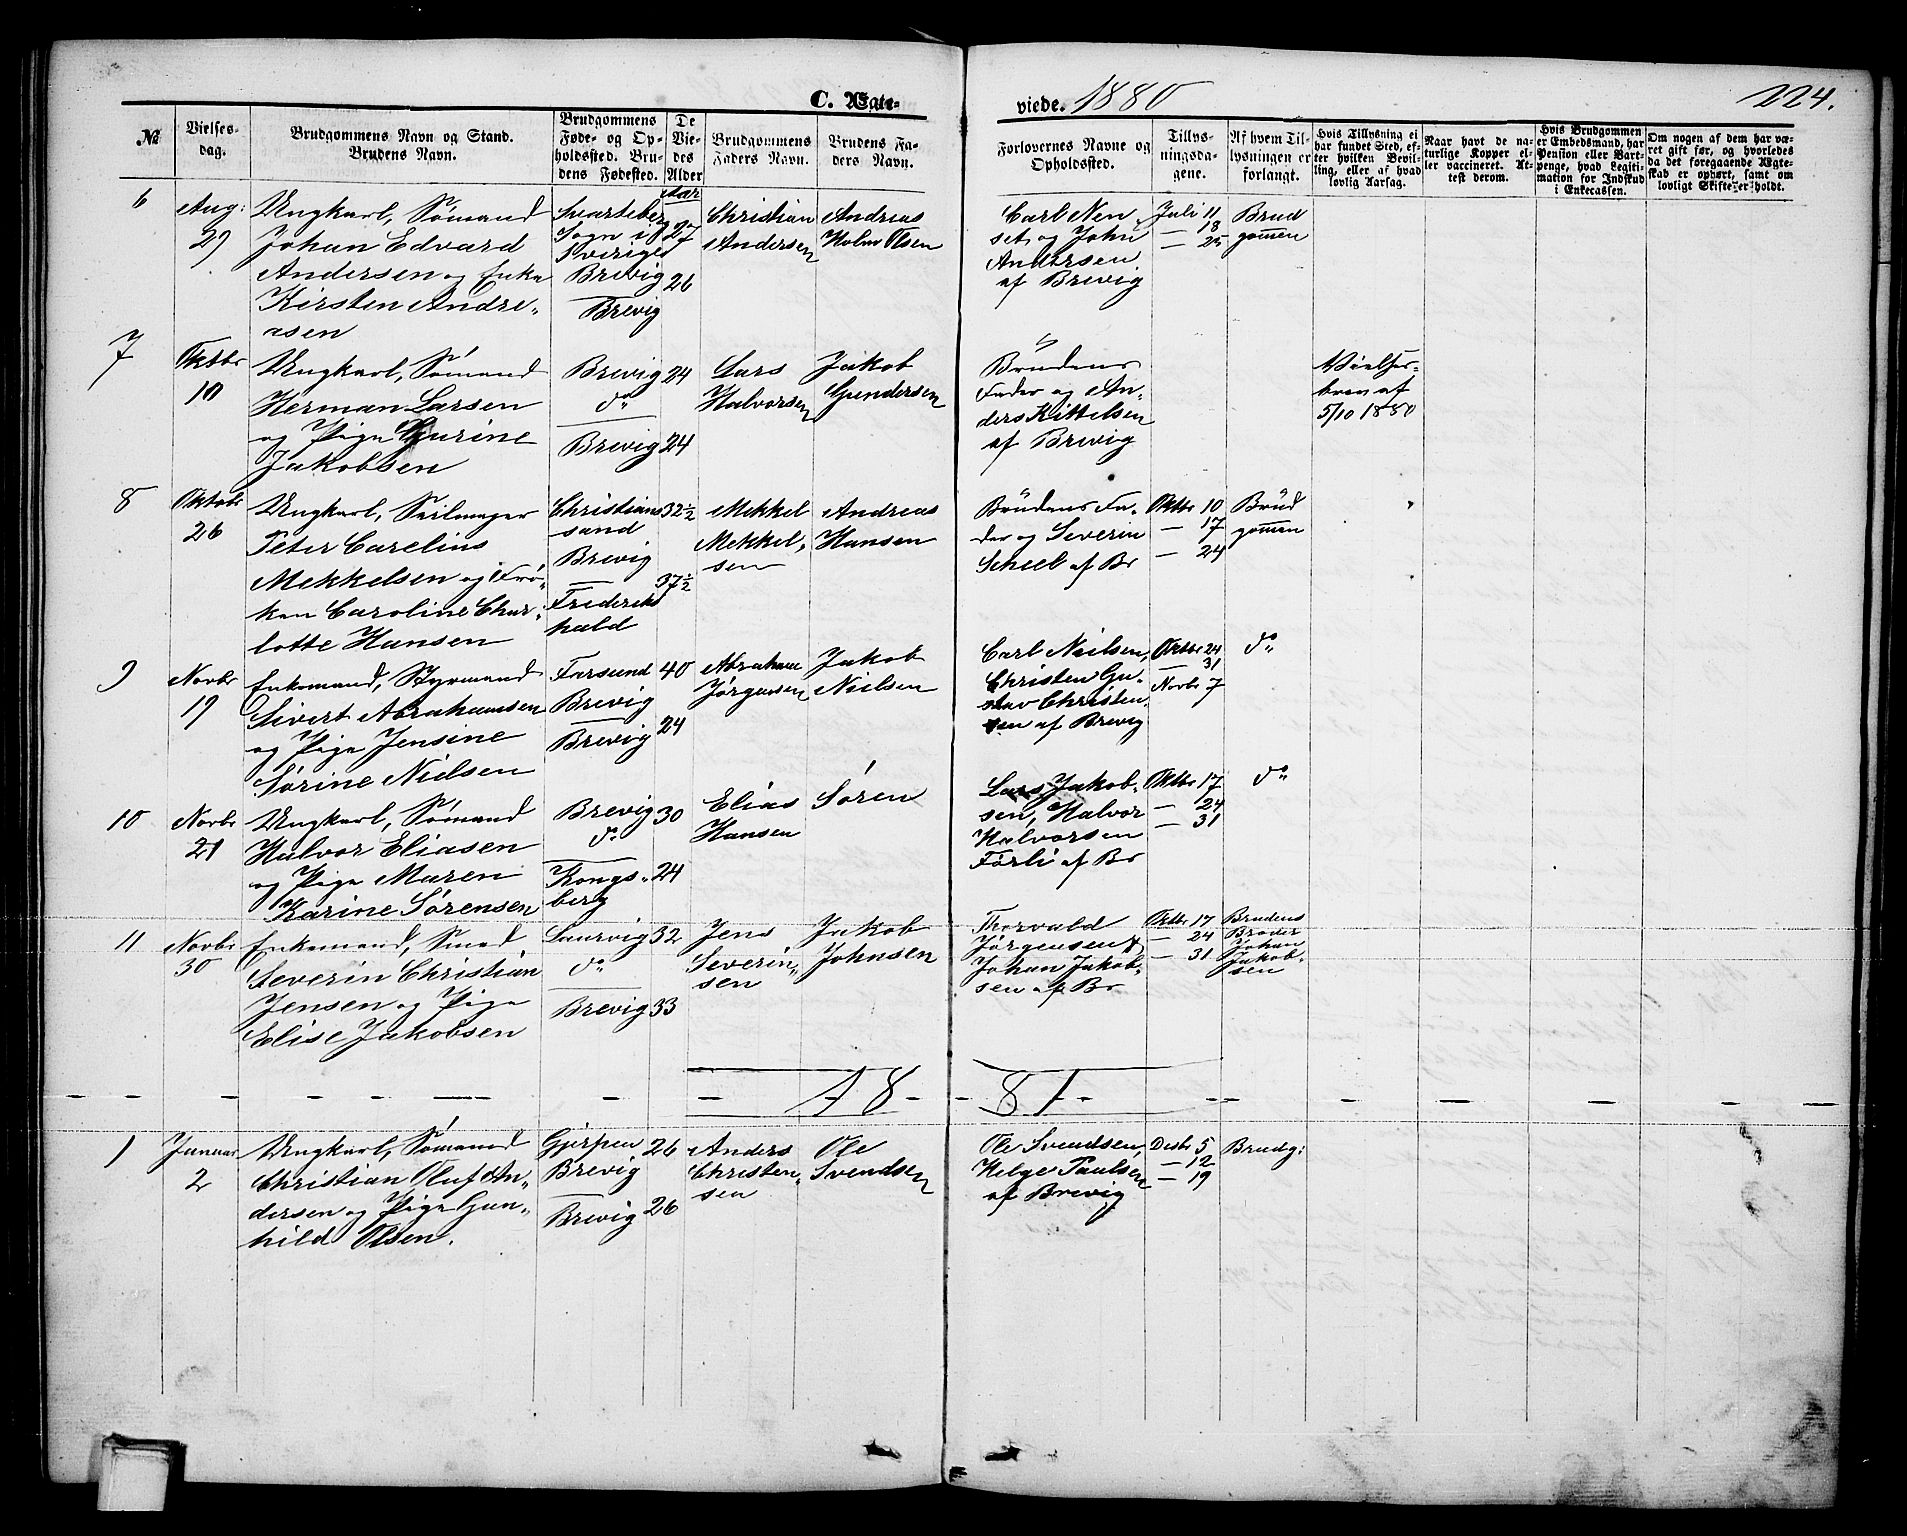 C. Ægte-
viede. 1880
224.
No
Vielses-
dag.
Brudgommens Navn og Stand.
Brudens Navn.
Brudgommens
Føde- og Op-
holdssted. Bru-
dens Fødested.
De
Vie-
des
Alder
Brudgommens
Faders Navn.
Brudens Fa-
ders Navn.
Forlovernes Navne og
Opholdssted.
Tillys-
ningsda-
gene.
Af hvem Til-
lysningen er
forlangt.
Hvis Tillysning ei
har fundet Sted, ef-
ter hvilken Bevil-
ling, eller af hvad
lovlig Aarsag.
Naar havt de na-
turlige Kopper el-
ler vaccineret. At-
test derom.
Hvis Brudgommen
er Embedsmand, har
Pension eller Vart-
penge, hvad Legiti-
mation for Indskud
i Enkecassen.
Om nogen af dem har væ-
ret gift før, og hvorledes
da det foregaaende Ægte-
skab er ophørt, samt om
lovligt Skifte er holdt.
6
Aug:
29
Ungkarl, Sømand
Johan Edvard
Andersen og Enke
Kirsten Andre-
asen
Svarteber
Sogn i
Sverige
Brevig
Brevig
Aar
27
26
Christian
Andersen
Andreas
Holm Olsen
Carl Nen
set og John
Andersen
af Brevig
Juli 11
— 18
— 25
Brud
gommen
7
Oktbr
10
Ungkarl, Sømand
Herman Larsen
og Pige Gurine
Jakobsen
Brevig
do
Brevig
24
24
Lars
Halvorsen
Jakob
Gundersen
Brudens
Fader og An-
ders Kittelsen
af Brevig
Vielses-
brev af
5/10 1880
8
Oktobr
26
Ungkarl, Seilmager
Peter Carelius
Mekkelsen og Frø-
ken Caroline Char-
lotte Hansen
Christians
sand
Brevig
Frederiks
hald
32½
37½
Mekkel
Mekkel-
sen
Andreas
Hansen
Brudens Fa-
der og Severin
Scheel af Br
Oktbr 10
— 17
— 24
Brud
gommen
9
Novbr
19
Enkemand, Styrmand
Sivert Abrahamsen
og Pige Jensine
Sørine Nielsen
Farsund
Brevig
Brevig
40
24
Abraham
Jørgensen
Jakob
Nielsen
Carl Nielsen,
Christen Gu-
stav Christen-
sen af Brevig
Oktbr 24
— 31
Novbr 7
do
10
Novbr
21
Ungkarl, Sømand
Halvor Eliasen
og Pige Maren
Karine Sørensen
Brevig
do
Kongs-
berg
30
24
Elias
Hansen
Søren
Lars Jakob-
sen, Halvor
Halvorsen
Førli af Br
Oktbr 17
— 24
— 31
do
11
Novbr
30
Enkemand, Smed
Severin Christian
Jensen og Pige
Elise Jakobsen
Laurvig
do
Brevig
32
33
Jens
Severin-
sen
Jakob
Johnsen
Thorvald
Jørgensen &
Johan Jakob-
sen af Br
Oktbr 17
— 24
— 31
Brudens
Broder
Johan
Jakob-
sen
18 81
1
Januar
2
Ungkarl, Sømand
Christian Oluf An-
dersen og Pige Gun-
hild Olsen.
Gjerpen
Brevig
Brevig
26
26
Anders
Christen-
sen
Ole
Svendsen
Ole Svendsen,
Helge Paulsen
af Brevig
Desbr 5
— 12
— 19
Brudg: